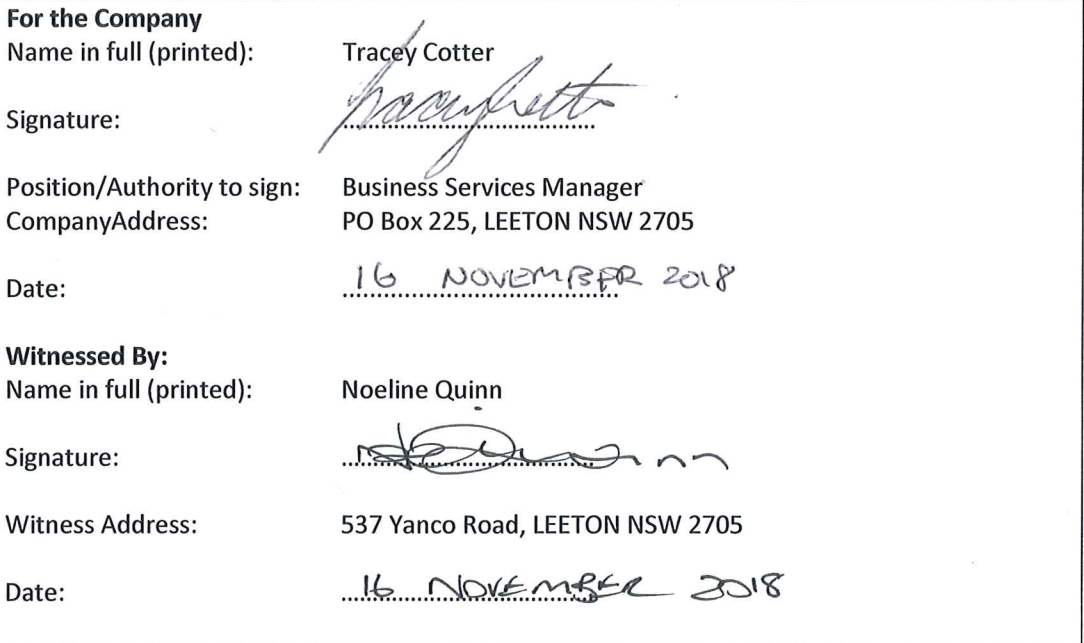 For the Company
Name in full (printed): Tracey Cotter
Signature:
Position/Authority to sign: Business Services Manager
CompanyAddress: PO Box 225, LEETON NSW 2705
Date: 16 NOVEMBER 2018
Witnessed By:
Name in full (printed): Noeline Quinn
Signature:
Witness Address: 537 Yanco Road, LEETON NSW 2705
Date: 16 NOVEMBER 2018